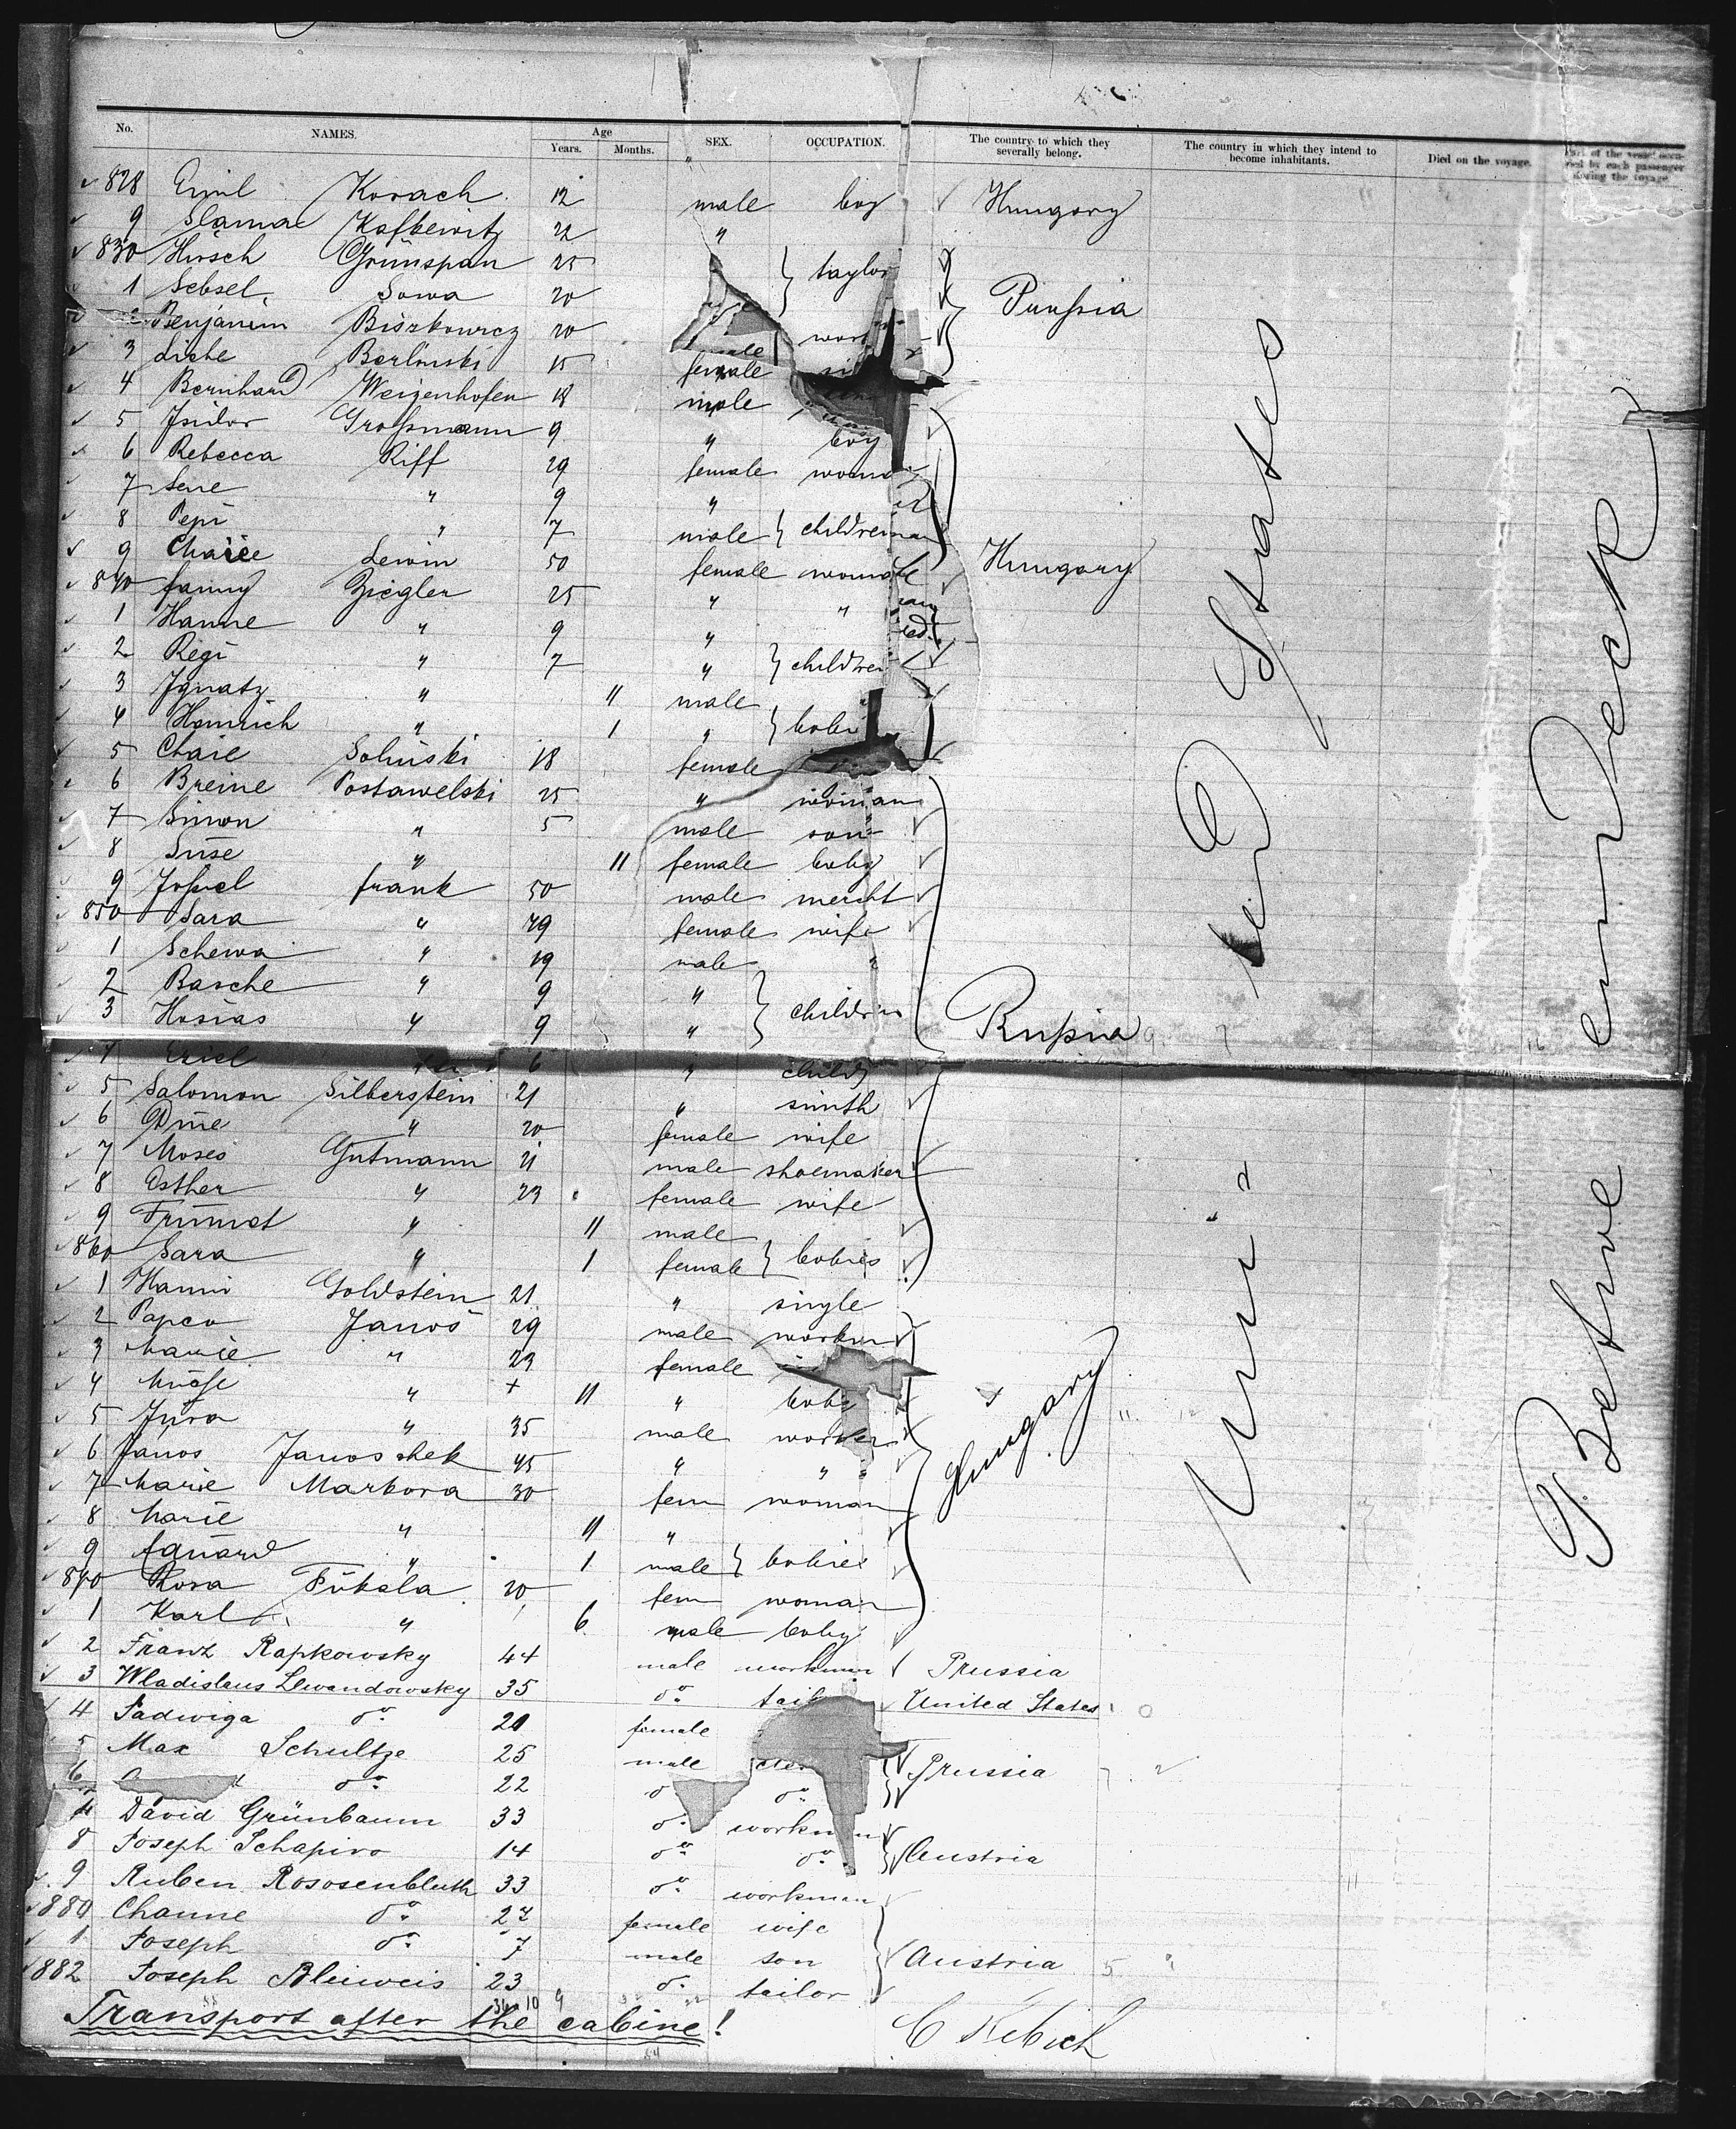 No. NAMES. Age Years. Months. SEX. OCCUPATION. The country to which they severally belong. The country in which they intend to become inhabitants. Died on the voyage. Part of the vessel occupied by each passenger during the voyage
828 Emil Korach 12 male boy Hungary
9 Slama Kafkewitz 22 "
830 Hirsch Grünspan 25 taylor
1 Sebsel Sowa 20 Prussia
2 Benjamin Biszkowicz 20
3 Liebe Berlinski 15 female
4 Bernhard Weizenhofen 18 male
5 Isidor Großmann 9 " boy
6 Rebecca Riff 29 female woman
7 Lene " 9 "
8 Pepi " 7 male children
9 Chaie Lewin 50 female woman Hungary
840 Fanny Ziegler 25 " "
1 Hanne " 9 "
2 Regi " 7 " children
3 Ignatz " 11 male
4 Heinrich " 1 "
5 Chaie Solinski 18 female
6 Breine Postawelski 25 " woman
7 Simon " 5 male son
8 Suse " 11 female baby
9 Jossel Frank 50 male mercht
850 Sara " 49 female wife
1 Schewa " 19 male "
2 Basche " 9 "
3 Hosias " 9 " children Russia
4 6 " child
5 Salomon Silberstein 21 " smith
6 " 20 female wife
7 Moses Gutmann 21 male shoemaker
8 Esther " 23 female wife
9 " 11 male
860 Sara " 1 female babies
1 Hanni Goldstein 21 " single
2 Janos 29 male worker
3 Marie " 23 female
4 " 11 " baby
5 Jura " 35 male worker
6 Janos Janoschek 45 " "
7 Marie Markova 30 fem woman Hungary
8 Marie " 11 "
9 " 1 male babies
870 Rosa Fuksla 20 fem woman
1 Karl " 6 male baby
2 Franz Rapkowsky 44 male workman Prussia
3 Wladislaus Lewandowsky 35 do. United States
4 Jadwiga do. 21 female
5 Max Schultze 25 male Prussia
6 do. 22 do.
7 David Grünbaum 33 do. workman
8 Joseph Schapiro 14 do. do. Austria
9 Ruben Rososenbluth 33 do. workman
880 Channe do. 27 female wife
1 Joseph do. 7 male son Austria
882 Joseph Bleiweis 23 do. tailor
Transport after the cabine!
United States
Betwe en Deck